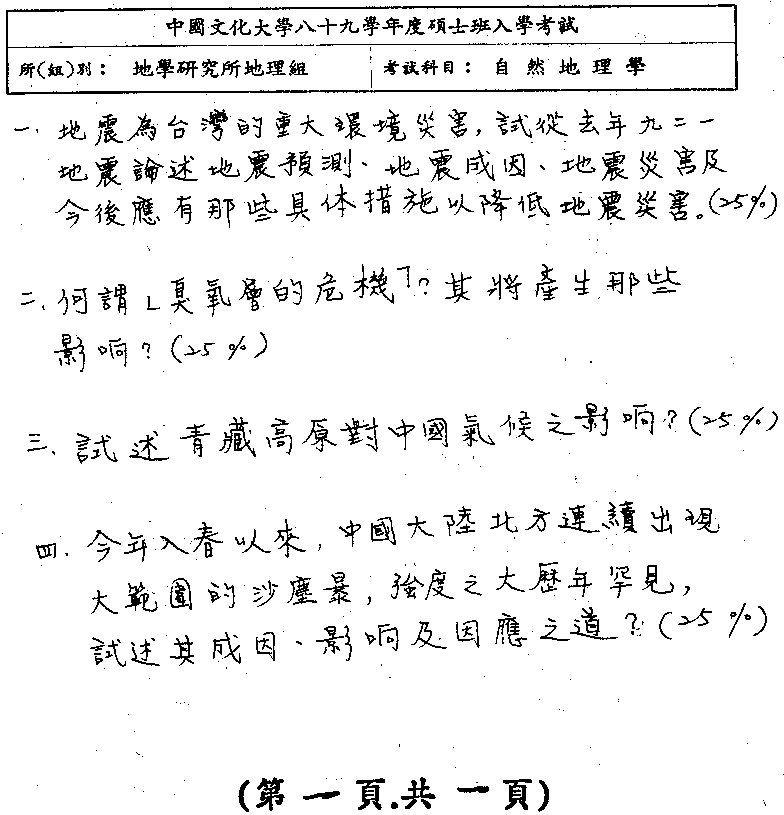 中國文化大學八十九學年度碩士班入學考試
所(組)別： 地學研究所地理組 考試科目： 自然地理學
一. 地震為台灣的重大環境災害,試從去年九二一
地震論述地震預測、地震成因、地震災害及
今後應有那些具体措施以降低地震災害。(25%)
二. 何謂「臭氧層的危機」?其將產生那些
影响?(25%)
三. 試述青藏高原對中國氣候之影响?(25%)
四. 今年入春以來,中國大陸北方連續出現
大範圍的沙塵暴,強度之大歷年罕見,
試述其成因、影响及因應之道?(25%)
(第一頁.共一頁)